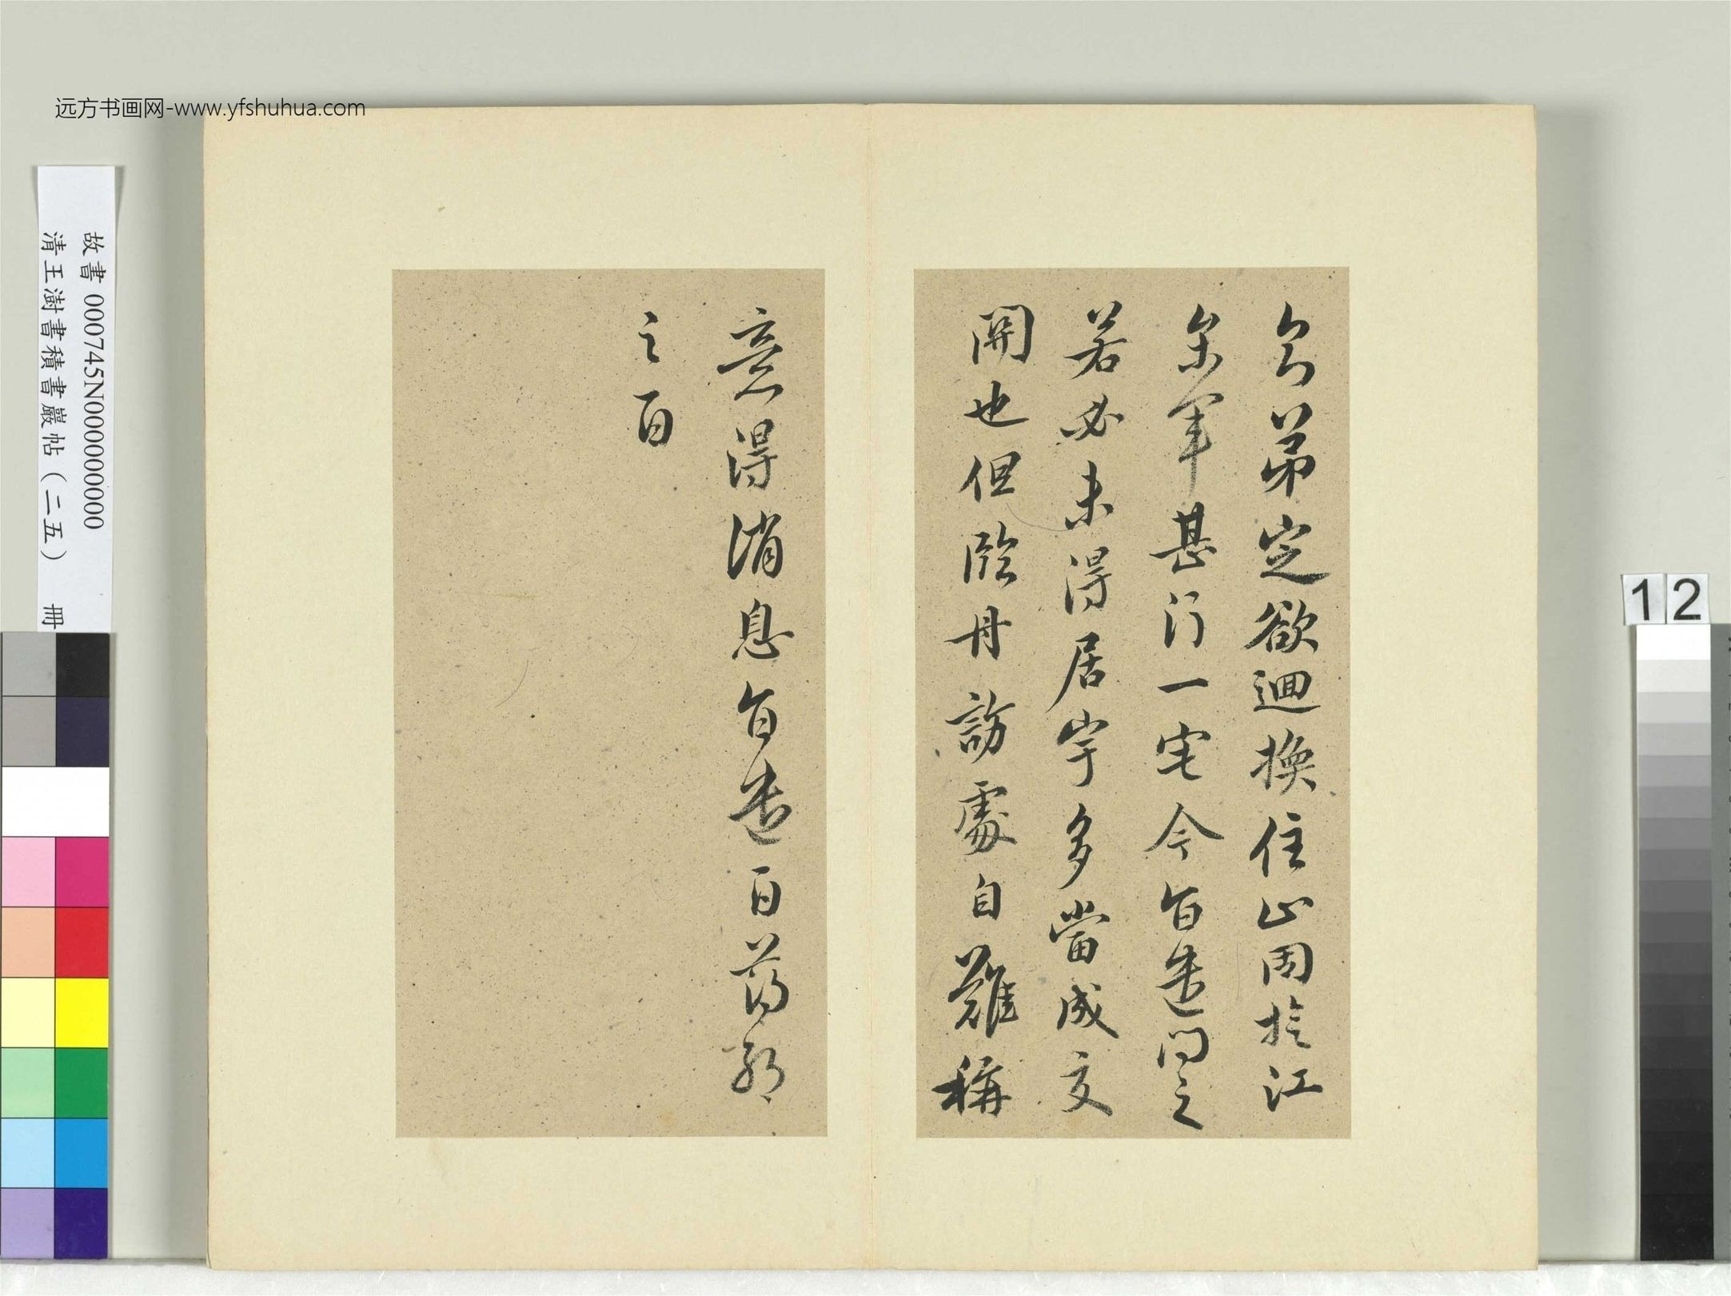 远方书画网-www.yfshuhua.com
故書 000745N000000000
清王澍書積書巖帖（二五） 冊
12
弟定欲迴換住止周於江
軍甚行一宅今旨遣问之
若必未得居宇多當成交
開也但臨丹訪處自難稱
意得消息旨遣百葯
之百